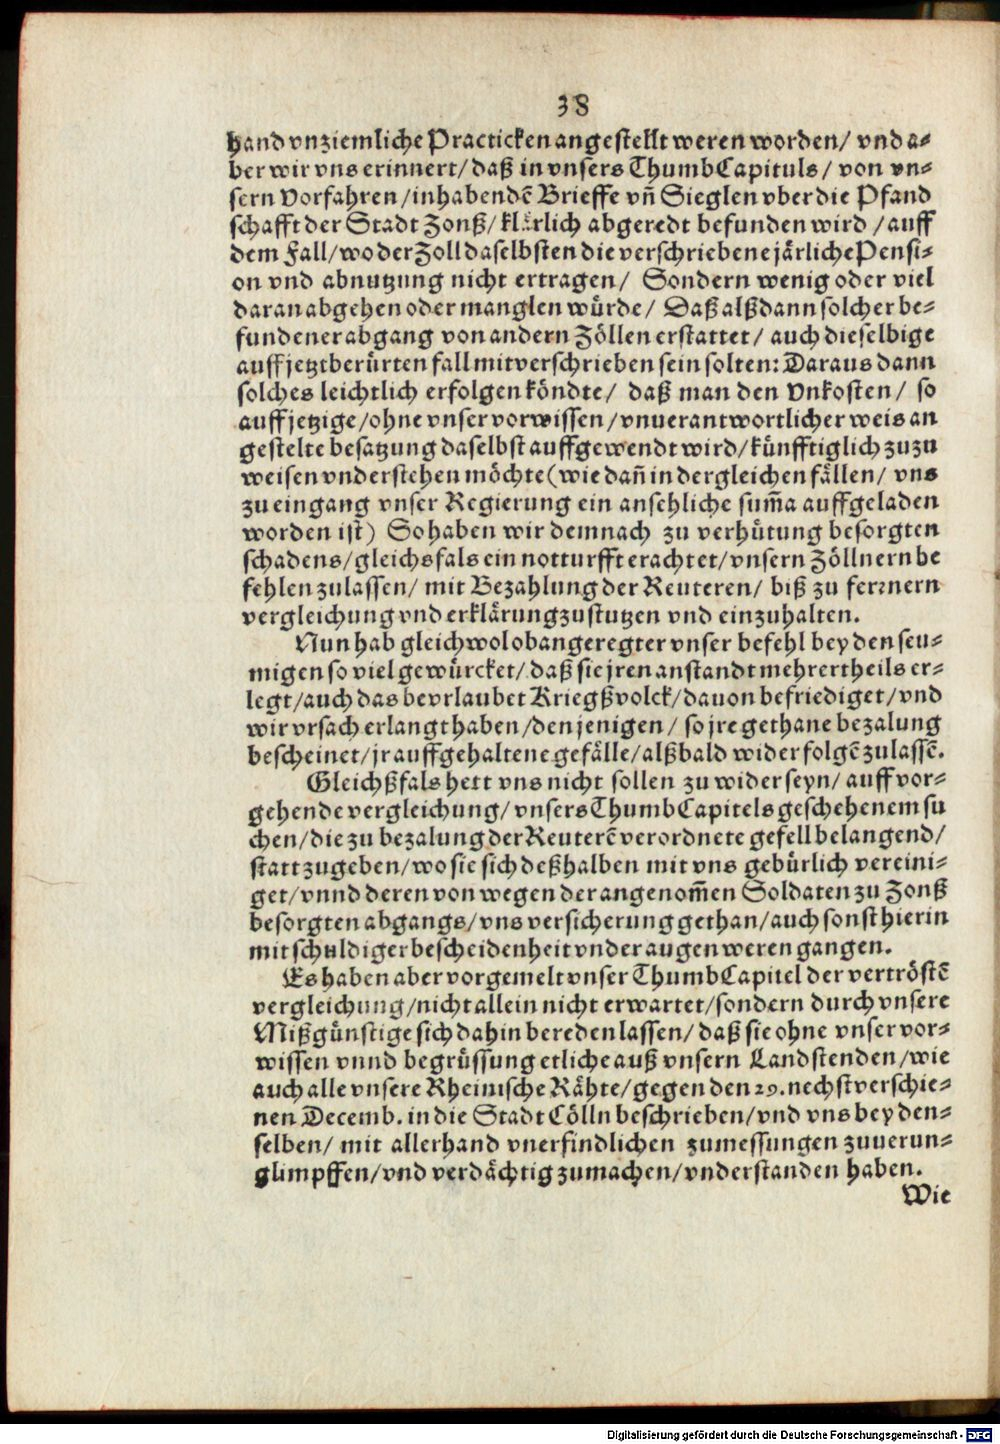 38
hand vnziemliche Practicken angestellt weren worden/ vnd a-
ber wir vns erinnert/ daß in vnsers ThumbCapituls/ von vn-
sern Vorfahren/ inhabendẽ Brieffe vñ Sieglen vber die Pfand
schafft der Stadt Zonß/ klårlich abgeredt befunden wird/ auff
dem Fall/ wo der Zoll daselbsten die verschriebene jårliche Pensi-
on vnd abnutzung nicht ertragen/ Sondern wenig oder viel
daran abgehen oder manglen wůrde/ Daß alßdann solcher be-
fundener abgang von andern Zöllen erstattet/ auch dieselbige
auff jetztberůrten fall mitverschrieben sein solten: Daraus dann
solches leichtlich erfolgen köndte/ daß man den Vnkosten/ so
auff jetzige/ ohne vnser vorwissen/ vnuerantwortlicher weis an
gestelte besatzung daselbst auffgewendt wird/ kůnfftiglich zuzu
weisen vnderstehen möchte (wie dañ in dergleichen fållen/ vns
zu eingang vnser Regierung ein ansehliche sum̃a auffgeladen
worden ist) So haben wir demnach zu verhůtung besorgten
schadens/ gleichsfals ein notturfft erachtet/ vnsern Zöllnern be
fehlen zulassen/ mit Bezahlung der Reuteren/ biß zu fernern
vergleichung vnd erklårung zustutzen vnd einzuhalten.
Nun hab gleichwol obangeregter vnser befehl bey den seu-
migen so viel gewůrcket/ daß sie jren anstandt mehrertheils er-
legt/ auch das bevrlaubet Kriegßvolck/ dauon befriediget/ vnd
wir vrsach erlangt haben/ den jenigen/ so jre gethane bezalung
bescheinet/ jr auffgehaltene gefålle/ alßbald widerfolgẽ zulassẽ.
Gleichßfals hett vns nicht sollen zu wider seyn/ auff vor-
gehende vergleichung/ vnsers ThumbCapitels geschehenem su
chen/ die zu bezalung der Reuterẽ verordnete gefell belangend/
statt zugeben/ wo sie sich deßhalben mit vns gebůrlich vereini-
get/ vnnd deren von wegen der angenom̃en Soldaten zu Zonß
besorgten abgangs/ vns versicherung gethan/ auch sonst hierin
mit schuldiger bescheidenheit vnder augen weren gangen.
Es haben aber vorgemelt vnser ThumbCapitel der vertröstẽ
vergleichung/ nicht allein nicht erwartet/ sondern durch vnsere
Mißgůnstige sich dahin bereden lassen/ daß sie ohne vnser vor-
wissen vnnd begrůssung etliche auß vnsern Landstenden/ wie
auch alle vnsere Rheinische Råhte/ gegen den 29. nechstverschie-
nen Decemb. in die Stadt Cölln beschrieben/ vnd vns bey den-
selben/ mit allerhand vnerfindlichen zumessungen zuuerun-
glimpffen/ vnd verdåchtig zumachen/ vnderstanden haben.
Wie
Digitalisierung gefördert durch die Deutsche Forschungsgemeinschaft - DFG